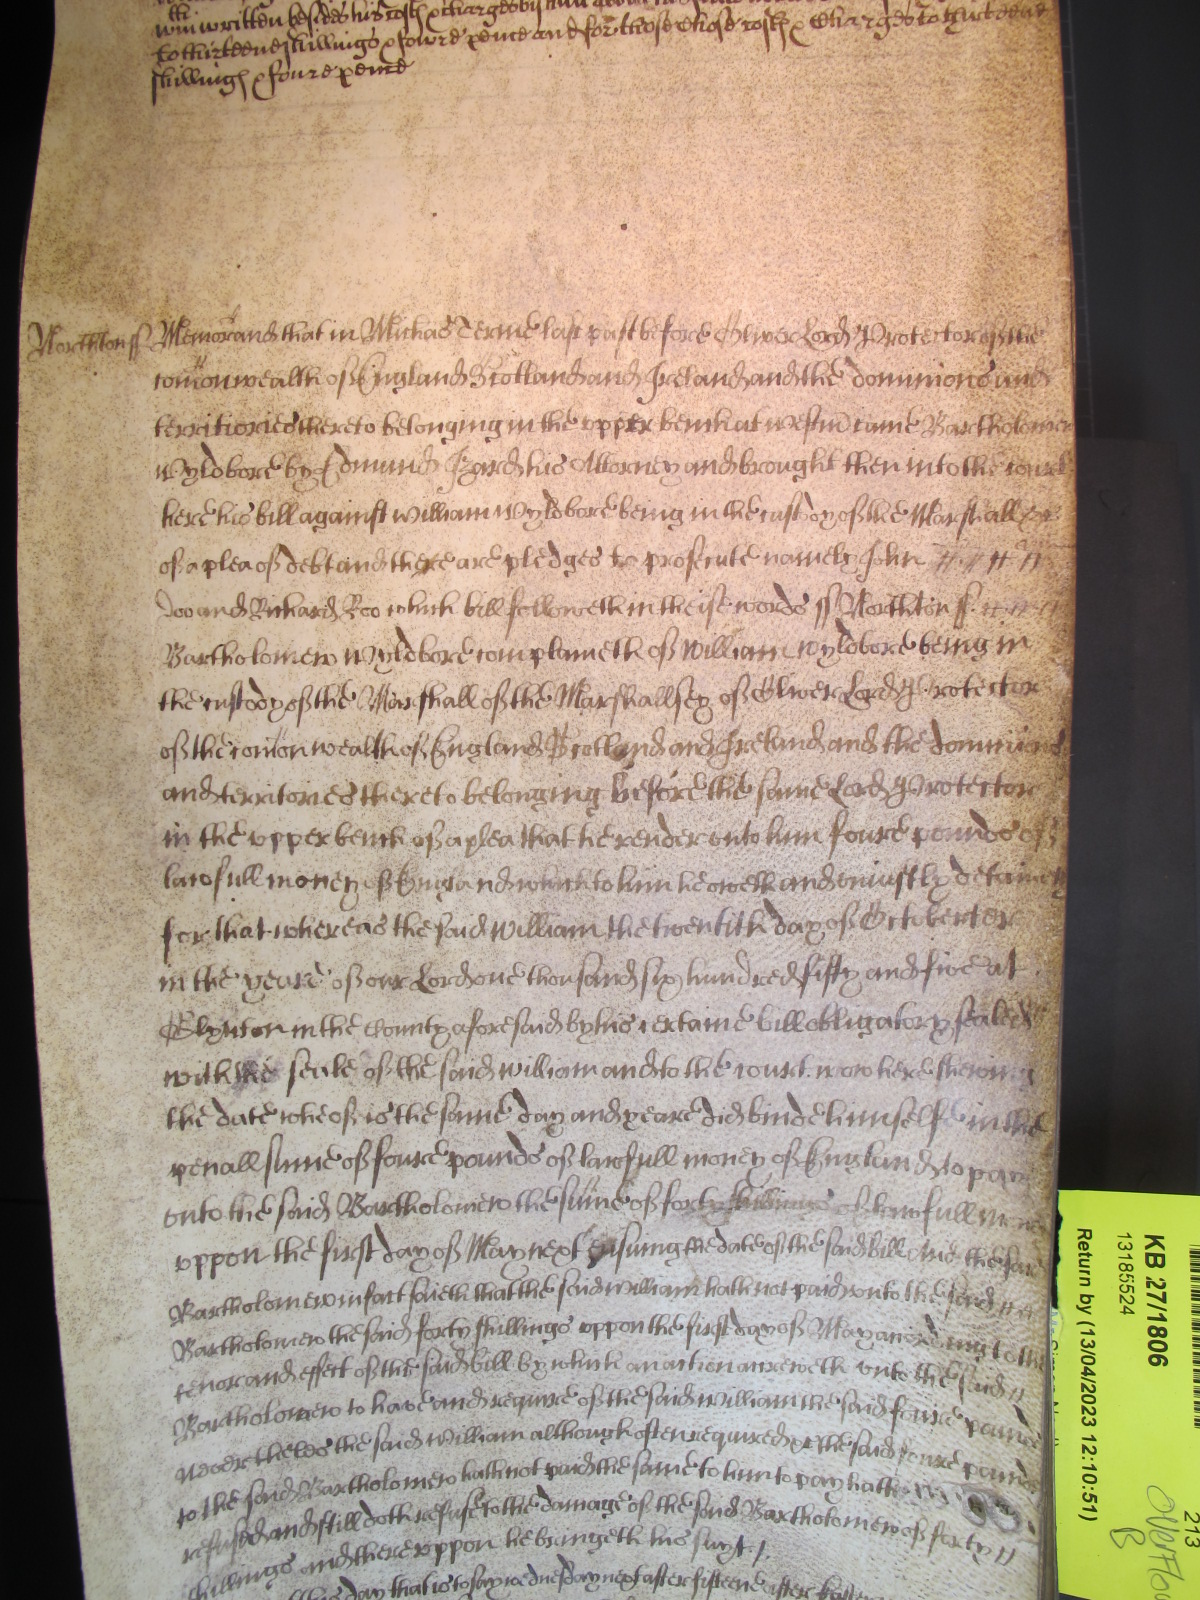 written besides his costs & charges by him about his suite
to thirteene shillings & foure pence and for those whose costs & charges to thirteene
shillings & foure pence
Northton ss Memorand that in Michas Terme last past before Oliver Lord Protector of the
com̄onwealth of England Scotland and Ireland and the dominions and
territories thereto belonging in the upper bench at westm̄ came Bartholomew
Wyldbore by Edmund his Attorney and brought then into the court
here his bill against William Wyldbore being in the custody of the Marshall &c
of a plea of debt and there are pledges to prosecute namely John
Doo and Richard Roo which bill followeth in theise words ss Northton ss
Bartholomew Wyldbore complaineth of William Wyldbore being in
the custody of the Marshall of the Marshallsey of Oliver Lord Protector
of the com̄onwealth of England Scotland and Ireland and the dominions
and territories thereto belonging before the same Lord Protector
in the upper bench of a plea that he render unto him foure pounds of
lawfull money of England which to him he oweth and uniustly detaineth
for that whereas the said William the twentith day of October
in the yeare of our Lord one thousand six hundred fifty and five at
Elynton in the County aforesaid by his certaine bill obligatory sealed
with the seale of the said William and to the court now here shewing
the date whereof is the same day and yeare did binde himselfe in the
penall sum̄e of foure pounds of lawfull money of England to pay
unto the said Bartholomew the sum̄e of forty shillings of lawfull money
uppon the first day of May next ensuing the date of the said bill And the said
Bartholomew in fact saieth that the said William hath not paid unto the said
Bartholomew the said forty shillings uppon the first day of May according to the
tenor and effect of the said bill by which an action accreweth unto the said
Bartholomew to have and require of the said William the said foure pounds
neverthelesse the said William although often required the said foure pounds
to the said Bartholomew hath not paid the same to him to pay hath
refused and still doth refuse to the damage of the said Bartholomew of forty
shillings and thereuppon he bringeth his suyt
this day that is to say wednesday next after fifteene after Easter
KB 27/1806
13185524
Return by (13/04/2023 12:10:51)
213
Overflow
B